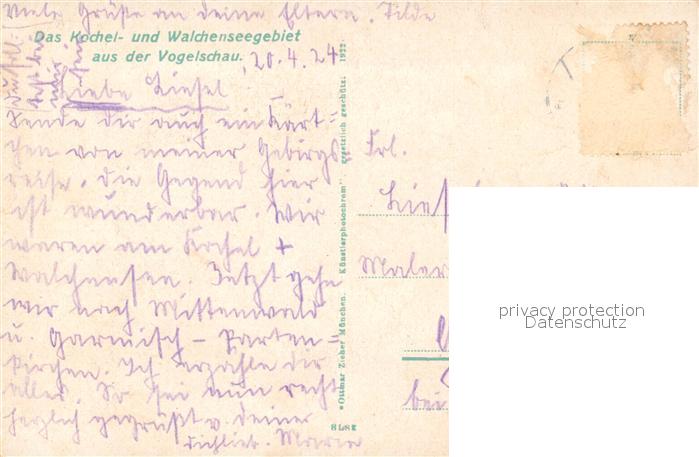 Viele Grüße an deine Eltern. Tilde
Das Kochel- und Walchenseegebiet
aus der Vogelschau.
20.4.24
Liebe Liesel
Sende dir auch ein Kärt=
chen von meiner Gebirgs=
reise. die Gegend hier
ist wunderbar. Wir
waren am Kochel +
Walchensee. Jetzt gehn
wir nach Mittenwald
u. Garmisch - Parten=
kirchen. Ich erzähle dir
alles. So sei nun recht
herzlich gegrüßt v. deiner
dichlieb. Maria
"Ottmar Zieher München. Künstlerphotochrom" gesetzlich geschützt. 1922.
Frl.
Maler
bei
privacy protection
Datenschutz